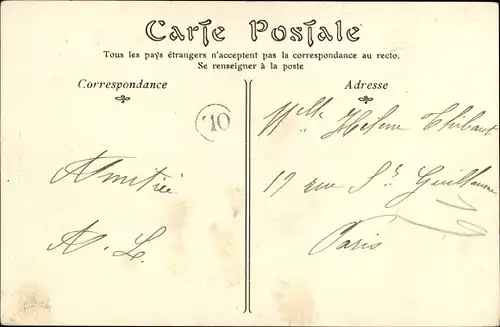 Carte Postale
Tous les pays étrangers n'acceptent pas la correspondance au recto.
Se renseigner à la poste
Correspondance
Adresse
Amitié
A. L.
Mlle Helene Thibaut
17 rue St Guillaume
Paris